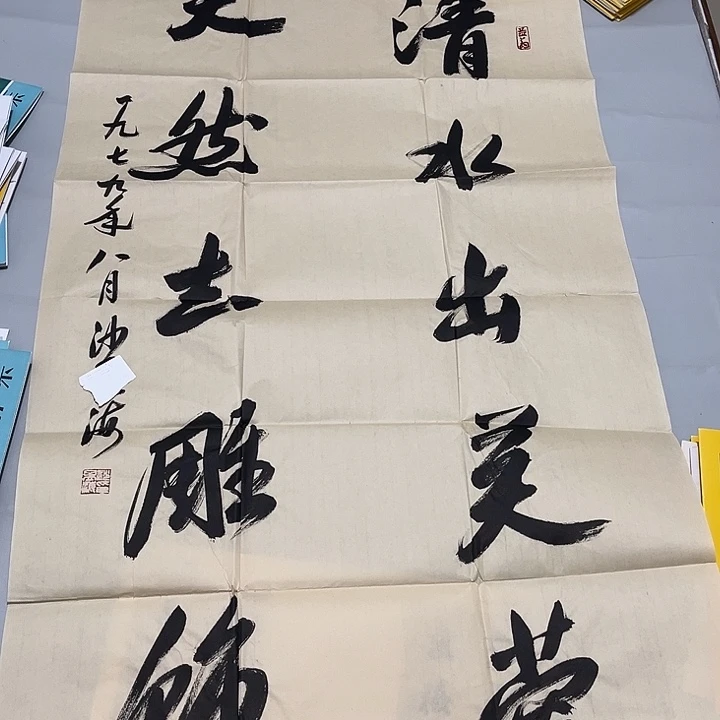 清水出芙蓉
天然去雕饰
一九七九年八月沙海